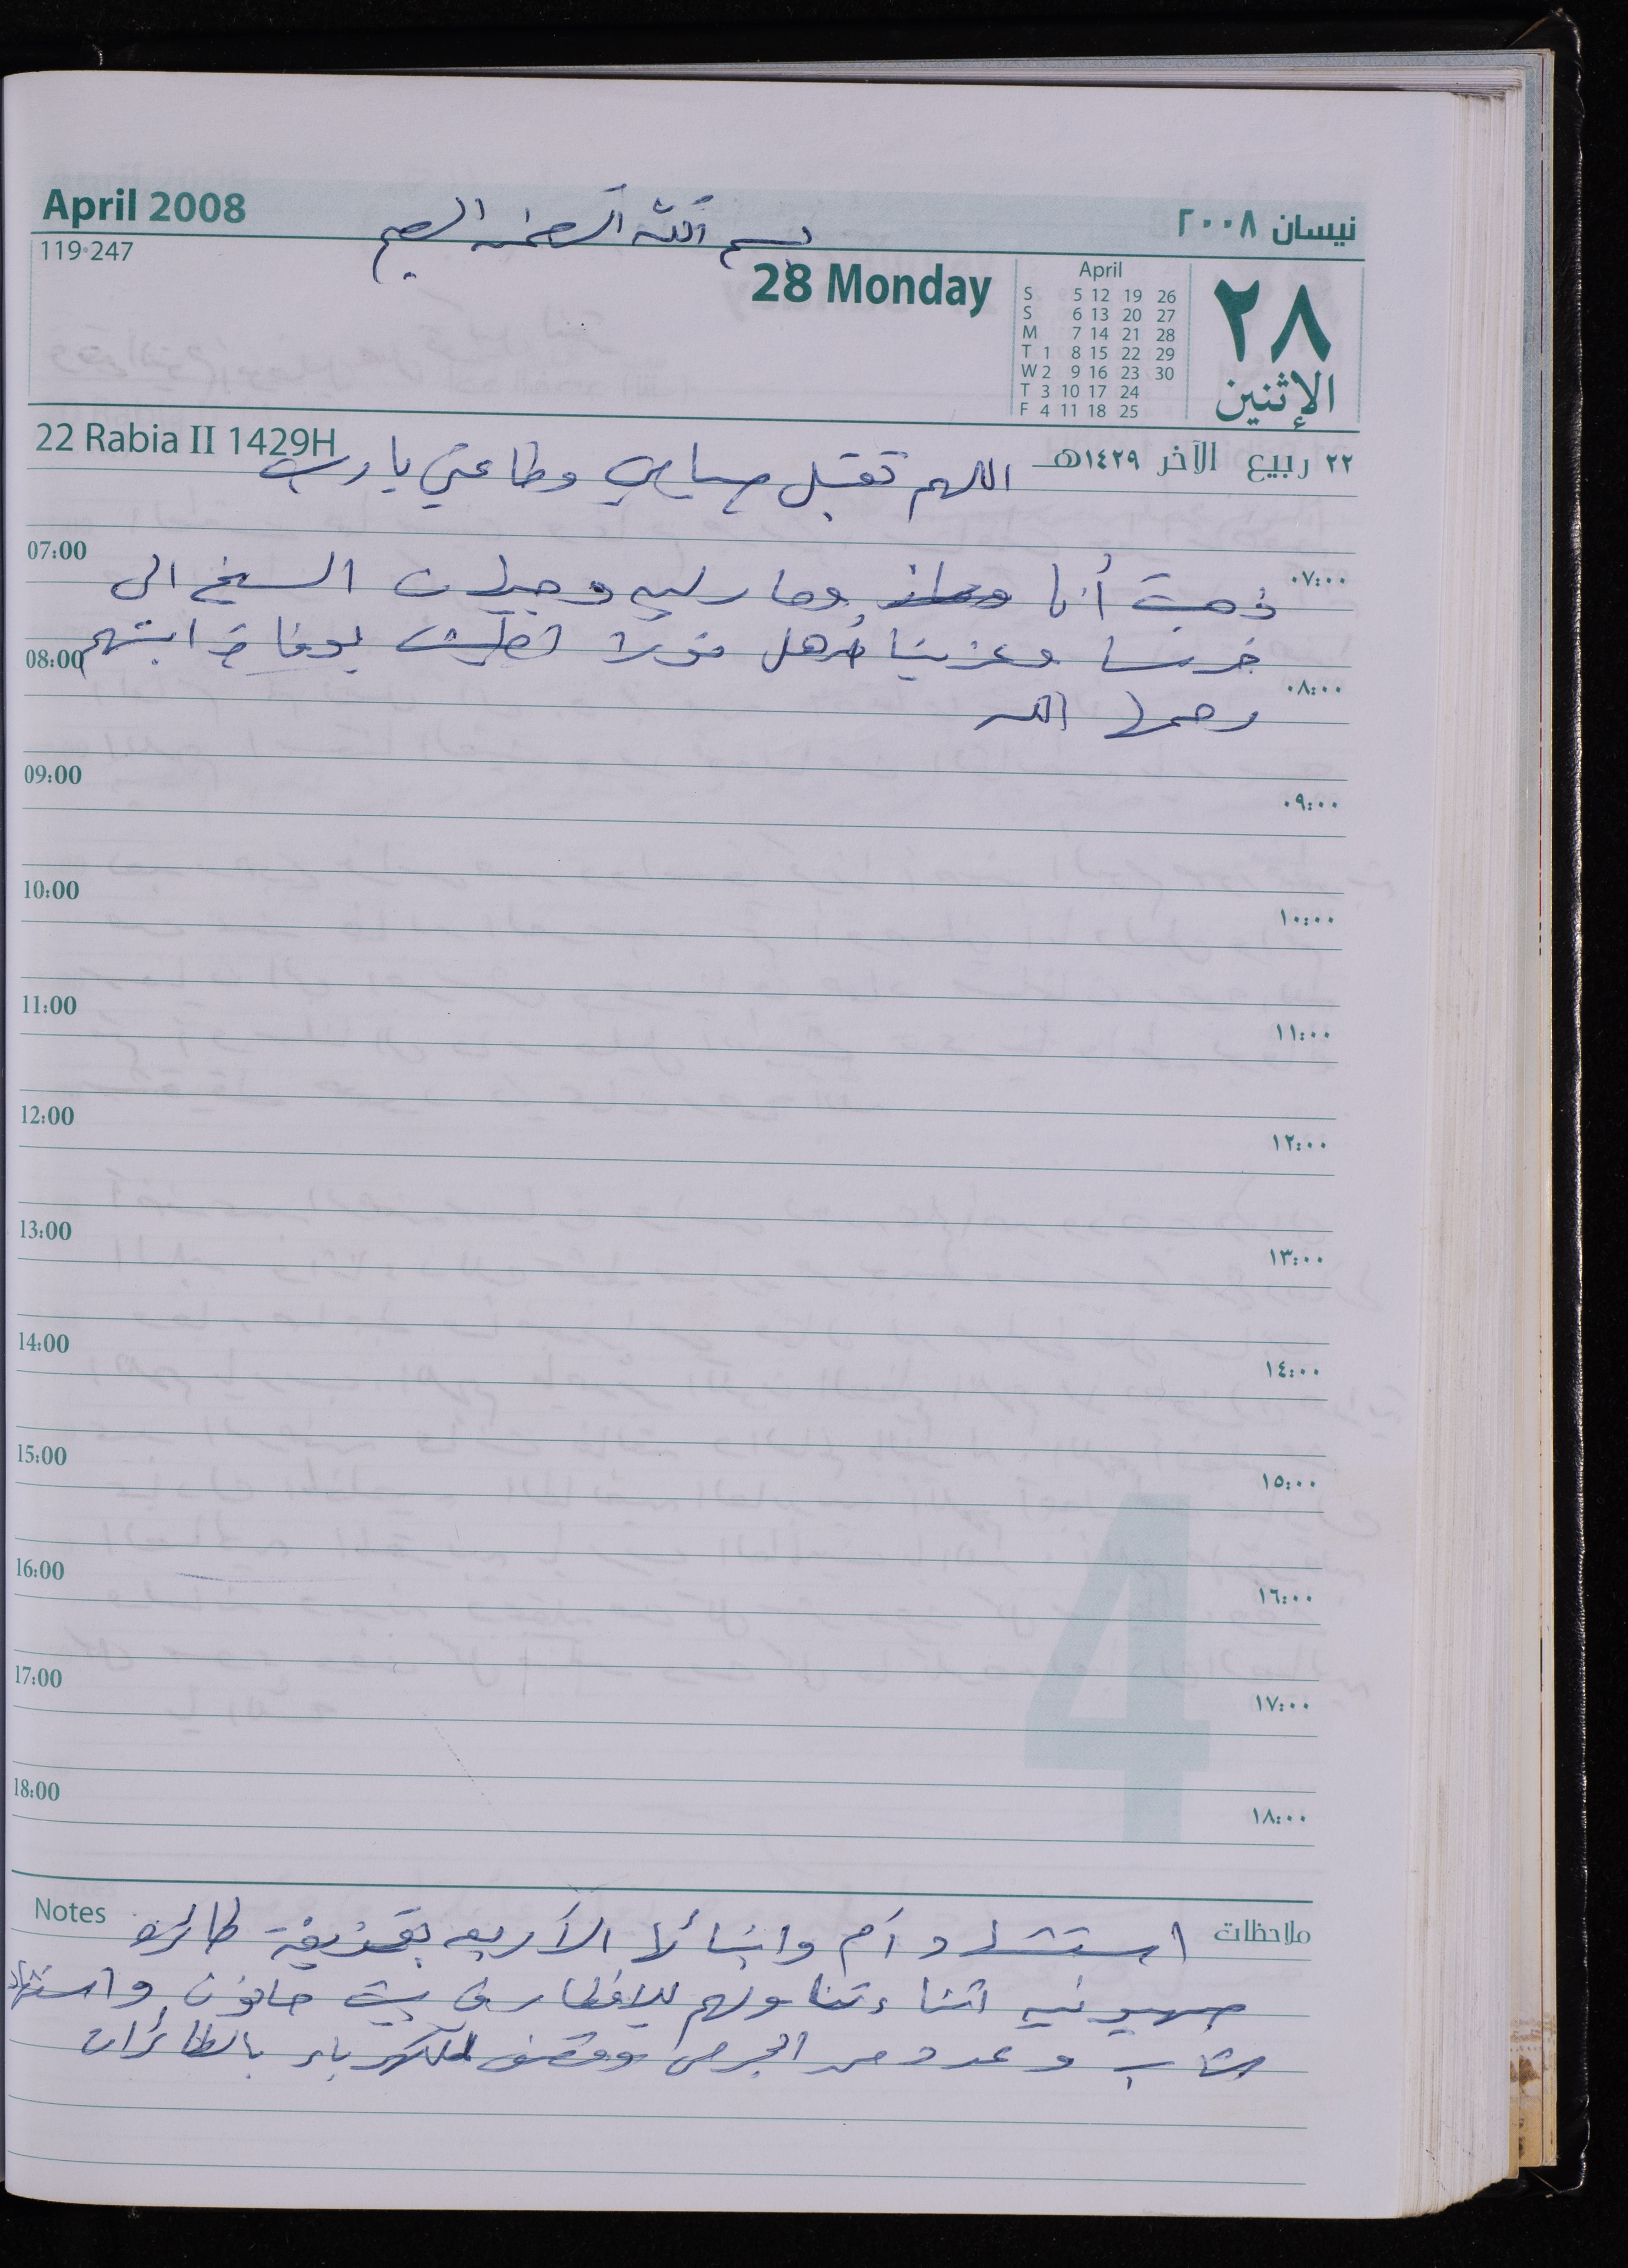 April 2008
نيسان ٢٠٠٨
بسم الله الرحمن الرحيم
119·247
28 Monday
April
S 5 12 19 26
S 6 13 20 27
M 7 14 21 28
T 1 8 15 22 29
W 2 9 16 23 30
T 3 10 17 24
F 4 11 18 25
٢٨
الإثنين
22 Rabia II 1429H
٢٢ ربيع الآخر ١٤٢٩هـ
اللهم تقبل صيامي وطاعتي يا رب
07:00 ٠٧:٠٠
ذهبت أنا الشيخ الى
وعزينا أهل بوفاة ابنتهم
08:00 ٠٨:٠٠
رحمها الله
09:00 ٠٩:٠٠
10:00 ١٠:٠٠
11:00 ١١:٠٠
12:00 ١٢:٠٠
13:00 ١٣:٠٠
14:00 ١٤:٠٠
15:00 ١٥:٠٠
16:00 ١٦:٠٠
17:00 ١٧:٠٠
18:00 ١٨:٠٠
4
Notes ملاحظات
استشهاد أم وابنائها الأربعه بقذيفة طائره
صهيونيه اثناء تناولهم للافطار في بيت حانون واستشهاد
شاب وعدد من الجرحى وقصف للكهرباء بالطائرات